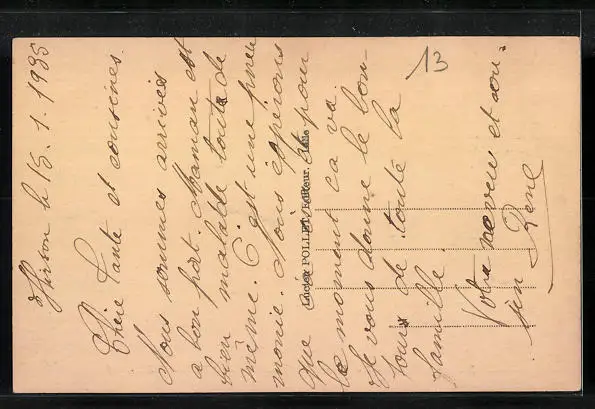 Hirson le 15.1.1935
Chère Tante et cousines.
Nous sommes arrivés
a bon port. Maman est
bien malade toute de
même. C'est une pneu
monie. Nous éspérons
que et pour
le moment ca va.
Je vous donne le bon-
jour de toute la
famille.
Votre neveu et cou-
sin René
Lucien POLLET, Editeur, Lille
13